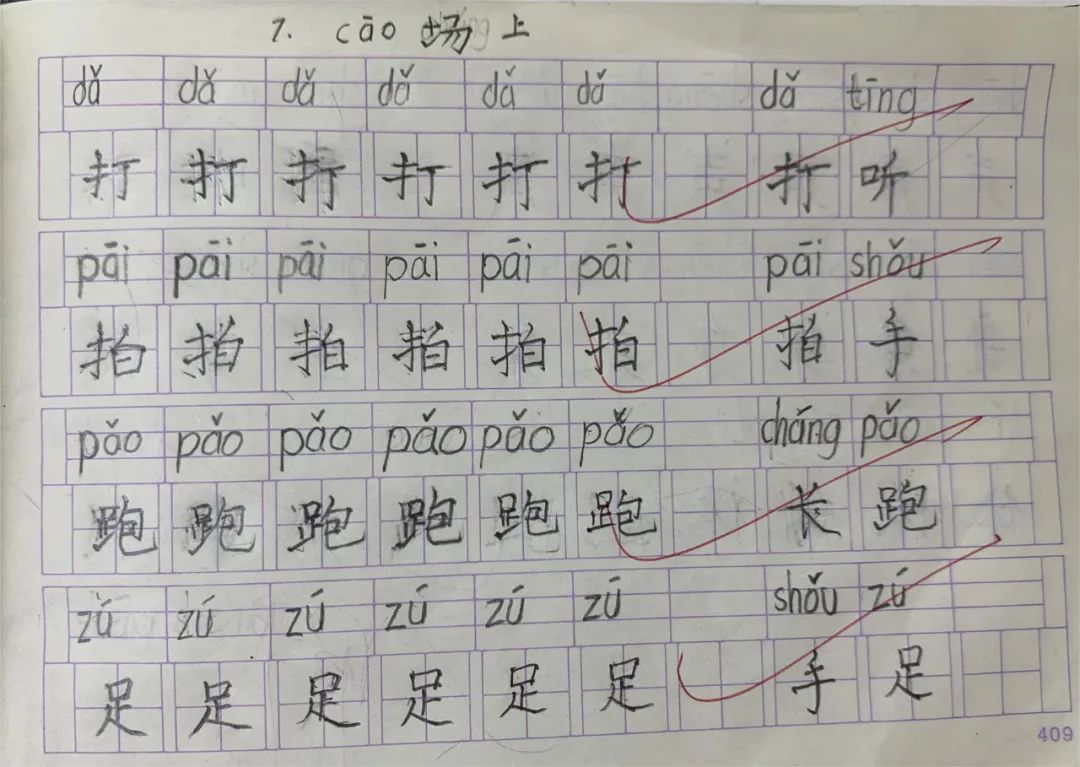 7. cāo 场上
dǎ dǎ dǎ dǎ dǎ dǎ dǎ tīng
打 打 打 打 打 打 打 听
pāi pāi pāi pāi pāi pāi pāi shǒu
拍 拍 拍 拍 拍 拍 拍 手
pǎo pǎo pǎo pǎo pǎo pǎo cháng pǎo
跑 跑 跑 跑 跑 跑 长 跑
zú zú zú zú zú zú shǒu zú
足 足 足 足 足 足 手 足
409